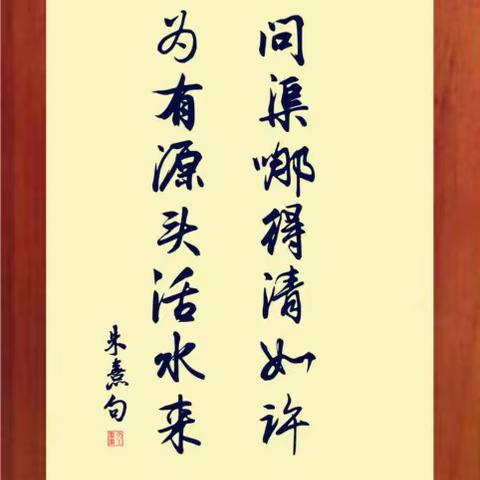 问渠哪得清如许
为有源头活水来
朱熹句